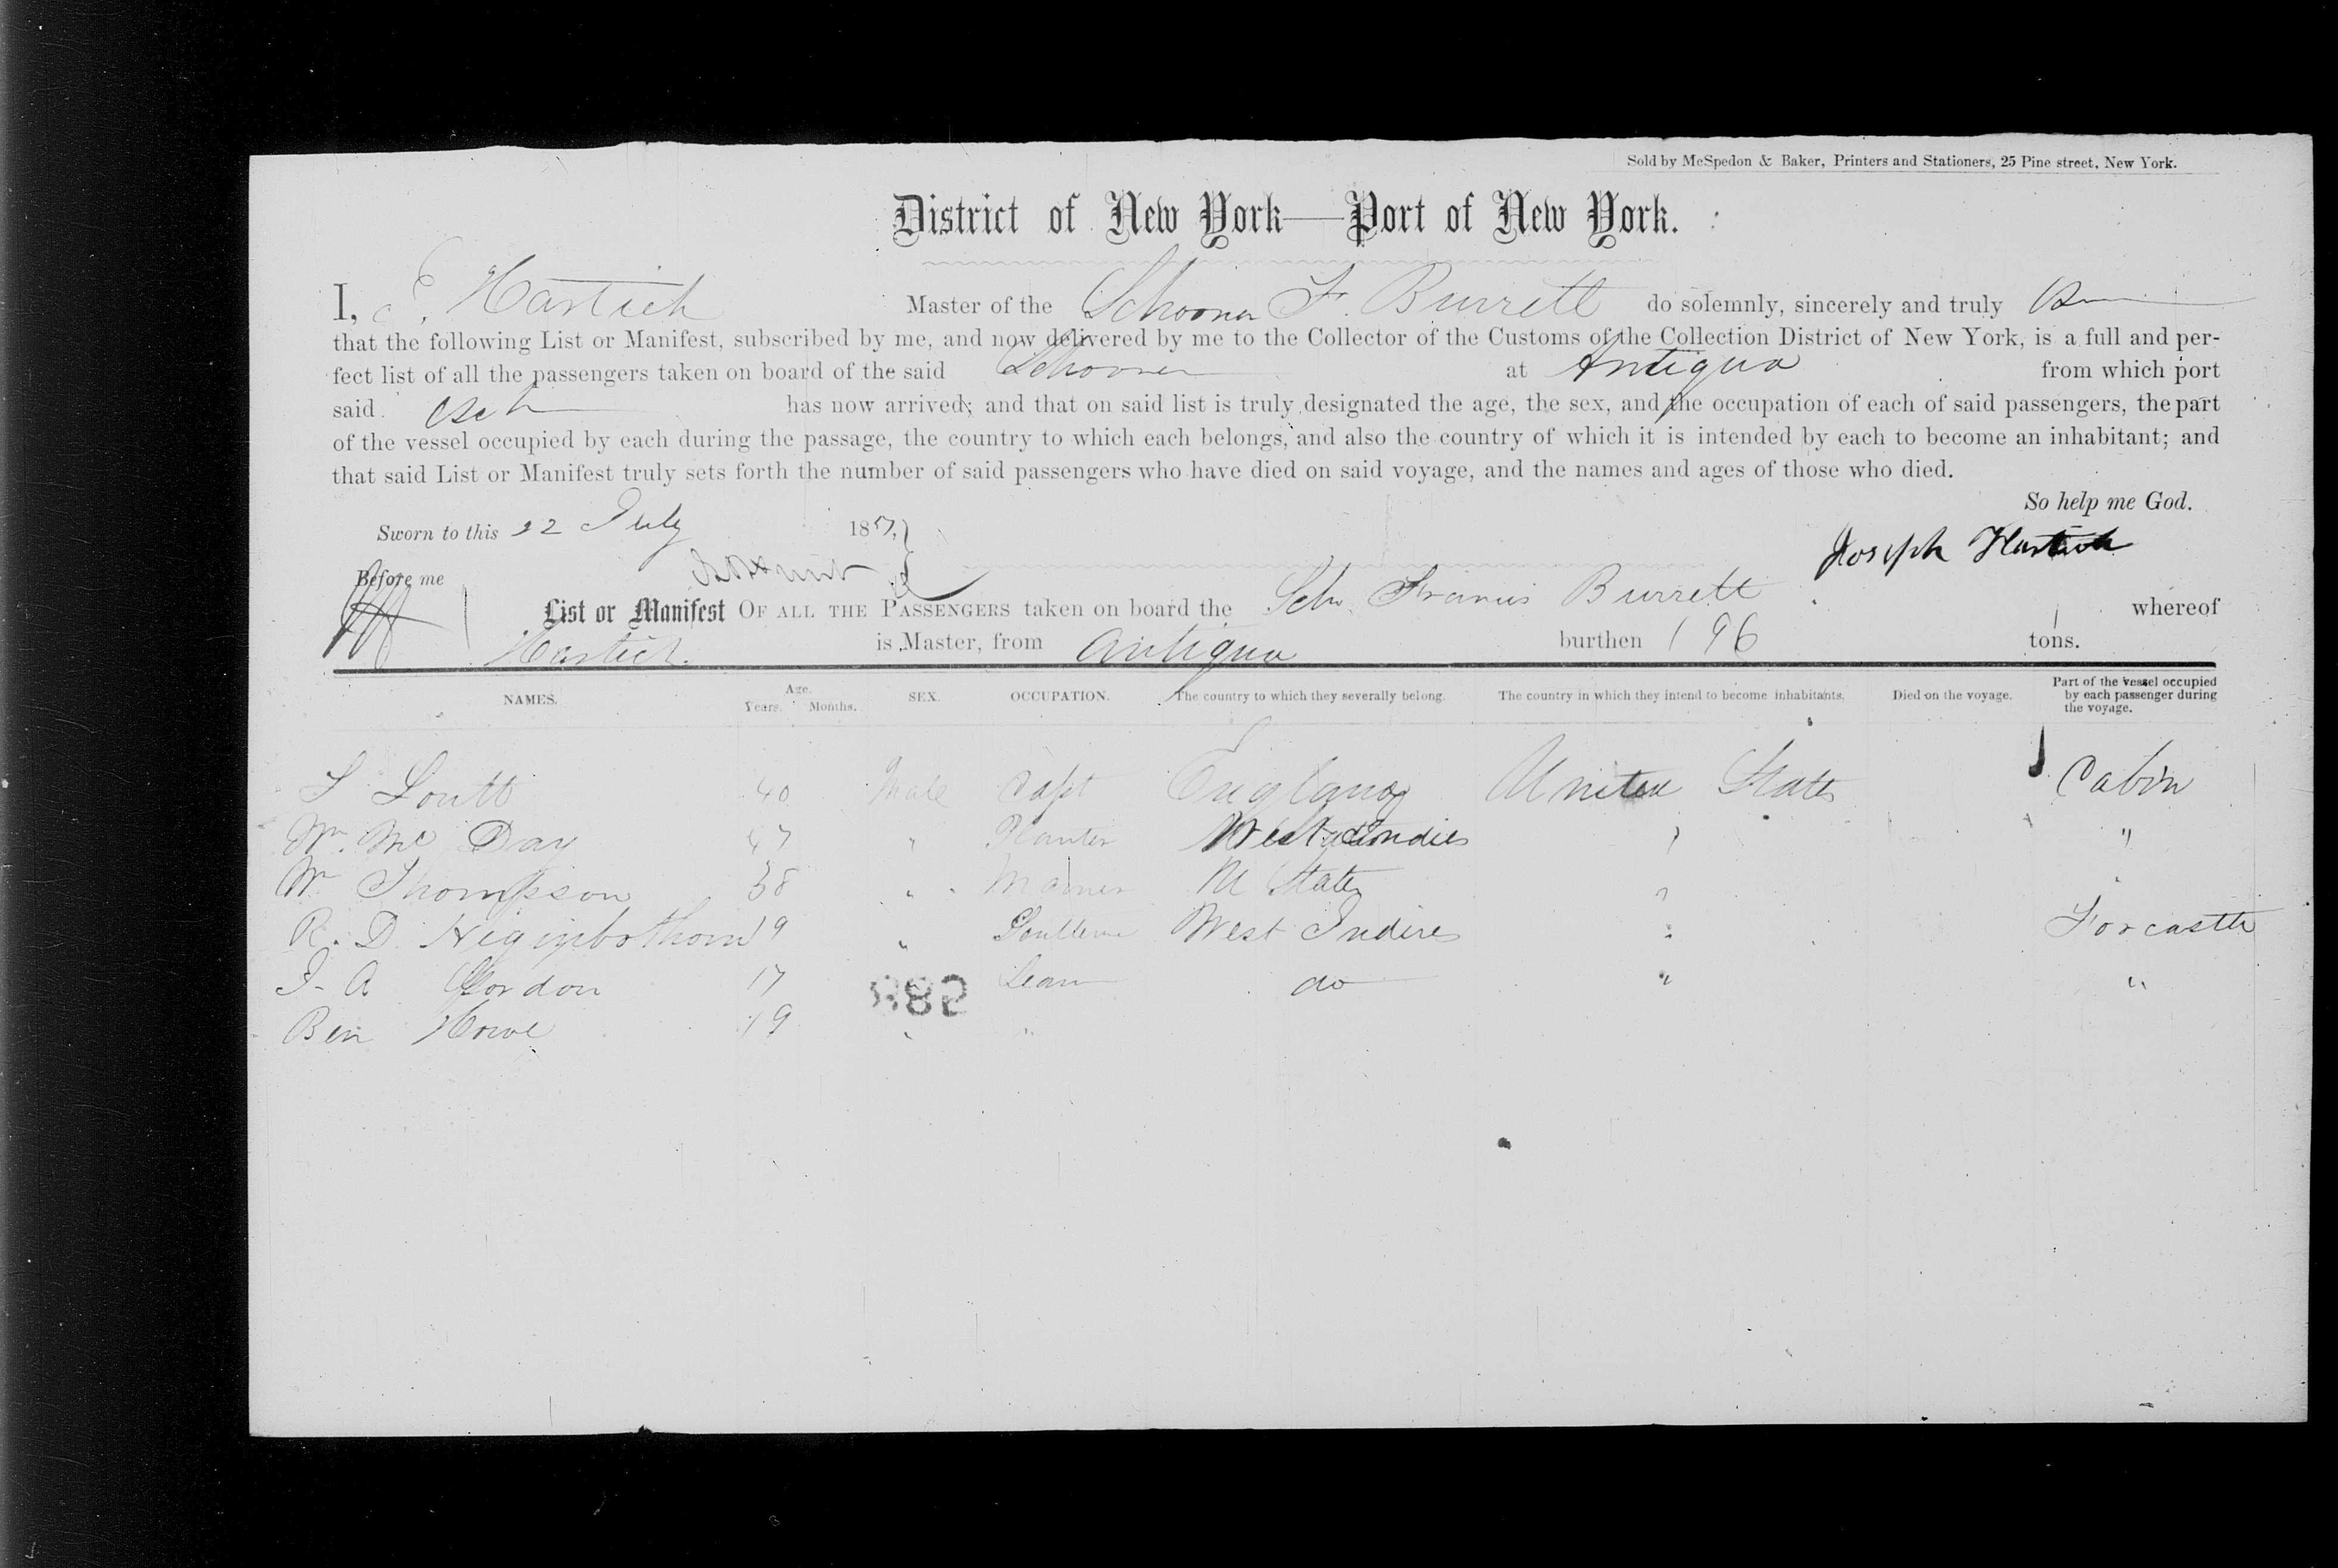 Sold by McSpedon & Baker, Printers and Stationers, 25 Pine street, New York.
District of New York—Port of New York.
I, Hartich Master of the Schooner F. Burrett do solemnly, sincerely and truly
that the following List or Manifest, subscribed by me, and now delivered by me to the Collector of the Customs of the Collection District of New York, is a full and per-
fect list of all the passengers taken on board of the said Schooner at Antigua from which port
said Sch has now arrived; and that on said list is truly designated the age, the sex, and the occupation of each of said passengers, the part
of the vessel occupied by each during the passage, the country to which each belongs, and also the country of which it is intended by each to become an inhabitant; and
that said List or Manifest truly sets forth the number of said passengers who have died on said voyage, and the names and ages of those who died.
So help me God.
Sworn to this 22 July 1857, Joseph Hartich
Before me
List or Manifest OF ALL THE PASSENGERS taken on board the Sch. Francis Burrett whereof
Hartich. is Master, from Antigua burthen 196 tons.
NAMES. Age. Years. Months. SEX. OCCUPATION. The country to which they severally belong. The country in which they intend to become inhabitants. Died on the voyage. Part of the vessel occupied by each passenger during the voyage.
S Loutt 40 Male Capt England United States Cabin
Wm. Mc Day 47 " Planter West Indies " "
Wm Thompson 38 " Mariner U States " "
R. D. Higinbothom 19 " West Indies " Forcastle
J. A Gordon 17 " Seam do " "
Ben Howe 19 " "